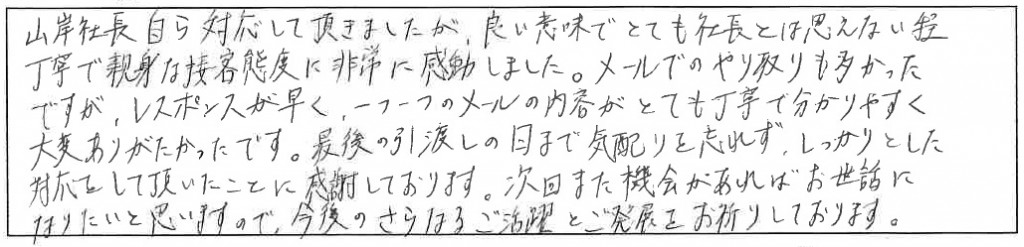 山岸社長自ら対応して頂きましたが、良い意味でとても社長とは思えない程
丁寧で親身な接客態度に非常に感動しました。メールでのやり取りも多かった
ですが、レスポンスが早く、一つ一つのメールの内容がとても丁寧で分かりやすく
大変ありがたかったです。最後の引渡しの日まで気配りを忘れず、しっかりとした
対応をして頂いたことに感謝しております。次回また機会があればお世話に
なりたいと思いますので、今後のさらなるご活躍とご発展をお祈りしております。